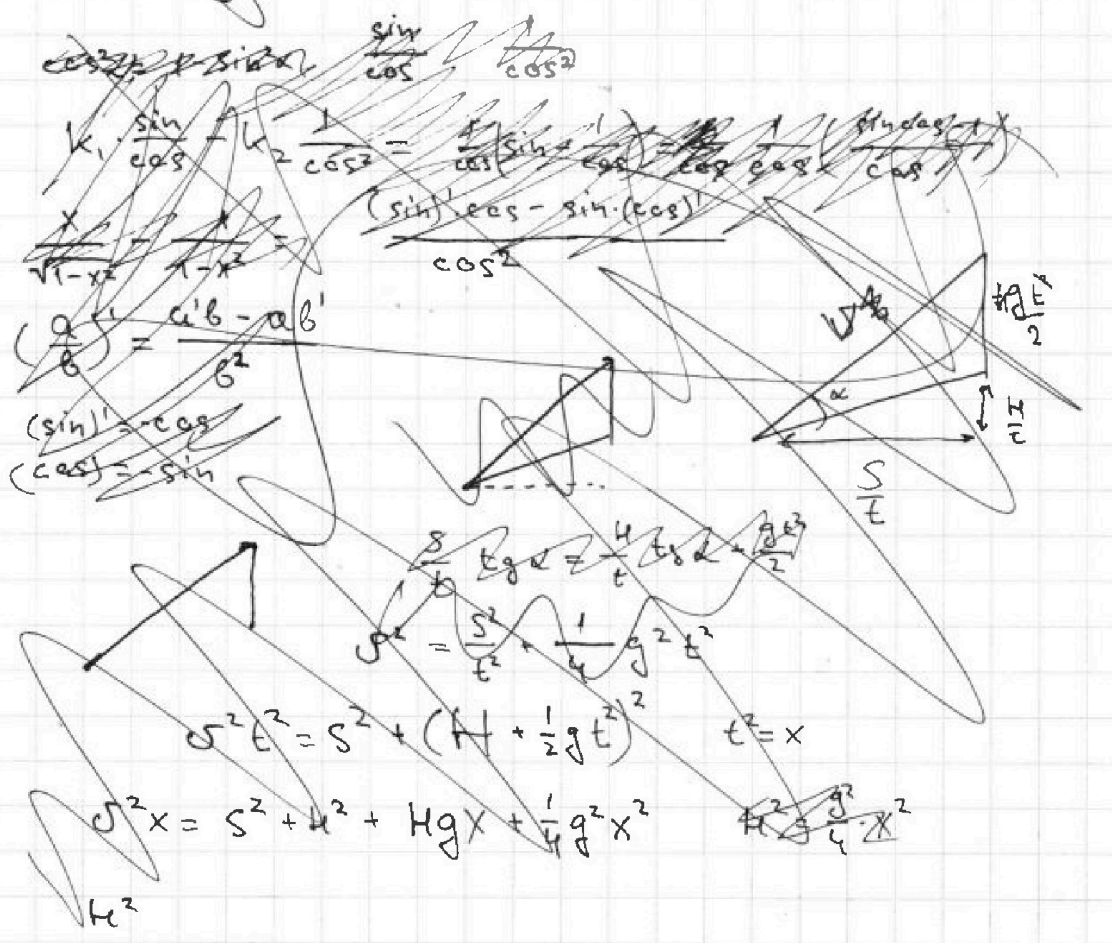 cos² = 1 - sin²α sin/cos 1/cos²
k₁ · sin/cos - k₂ 1/cos² = 1/cos (sin - 1/cos) = 1/cos (sin cos - 1 / cos)
x/√1-x² - 1/1-x² =
(sin)'·cos - sin·(cos)' / cos²
(a/b)' = a'b - ab' / b²
gt²/2
α
H/t
S/t
(sin)' = -cos
(cos) = -sin
S/t tg α = H/t tg α + gt²/2
v² = S²/t² + 1/4 g² t²
v² t² = S² + (H + 1/2 g t²)² t² = x
v² x = S² + H² + Hgx + 1/4 g² x² H² = g²/4 · x²
H²